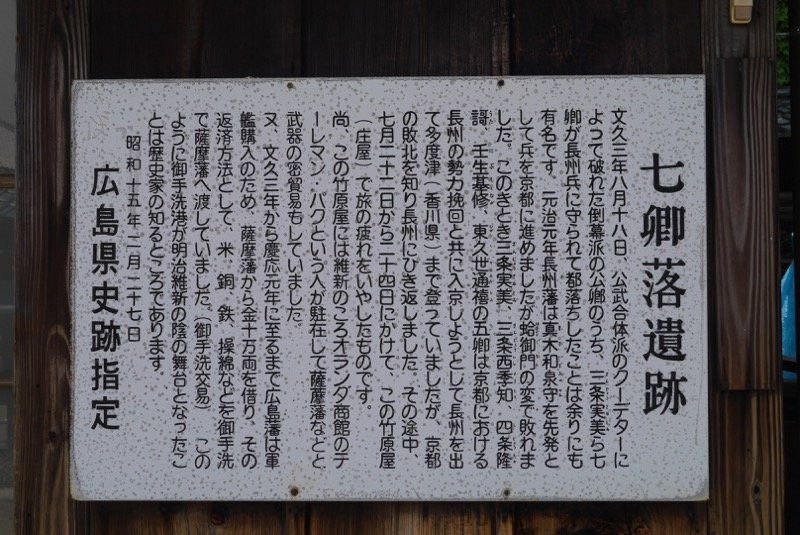 七卿落遺跡
文久三年八月十八日、公武合体派のクーデターに
よって破れた倒幕派の公卿のうち、三条実美ら七
卿が長州兵に守られて都落ちしたことは余りにも
有名です。元治元年長州藩は真木和泉守を先発と
して兵を京都に進めましたが蛤御門の変で敗れま
した。このきとき三条実美、三条西季知、四条隆
謌、壬生基修、東久世通禧の五卿は京都における
長州の勢力挽回と共に入京しようとして長州を出
て多度津(香川県)まで登っていましたが、京都
の敗北を知り長州にひき返しました。その途中、
七月二十二日から二十四日にかけて、この竹原屋
(庄屋)で旅の疲れをいやしたものです。
尚、この竹原屋には維新のころオランダ商館のテ
ーレマン・バクという人が駐在して薩藩などと
武器の密貿易もしていました。
又、文久三年から慶応元年に至るまで広島藩は軍
艦購入のため、薩摩藩から金十万両を借り、その
返済方法として、米、銅、鉄、操綿などを御手洗
で薩摩藩へ渡していました。(御手洗交易) この
ように御手洗港が明治維新の陰の舞台となったこ
とは歴史家の知るところであります。
昭和十五年二月二十七日
広島県史跡指定